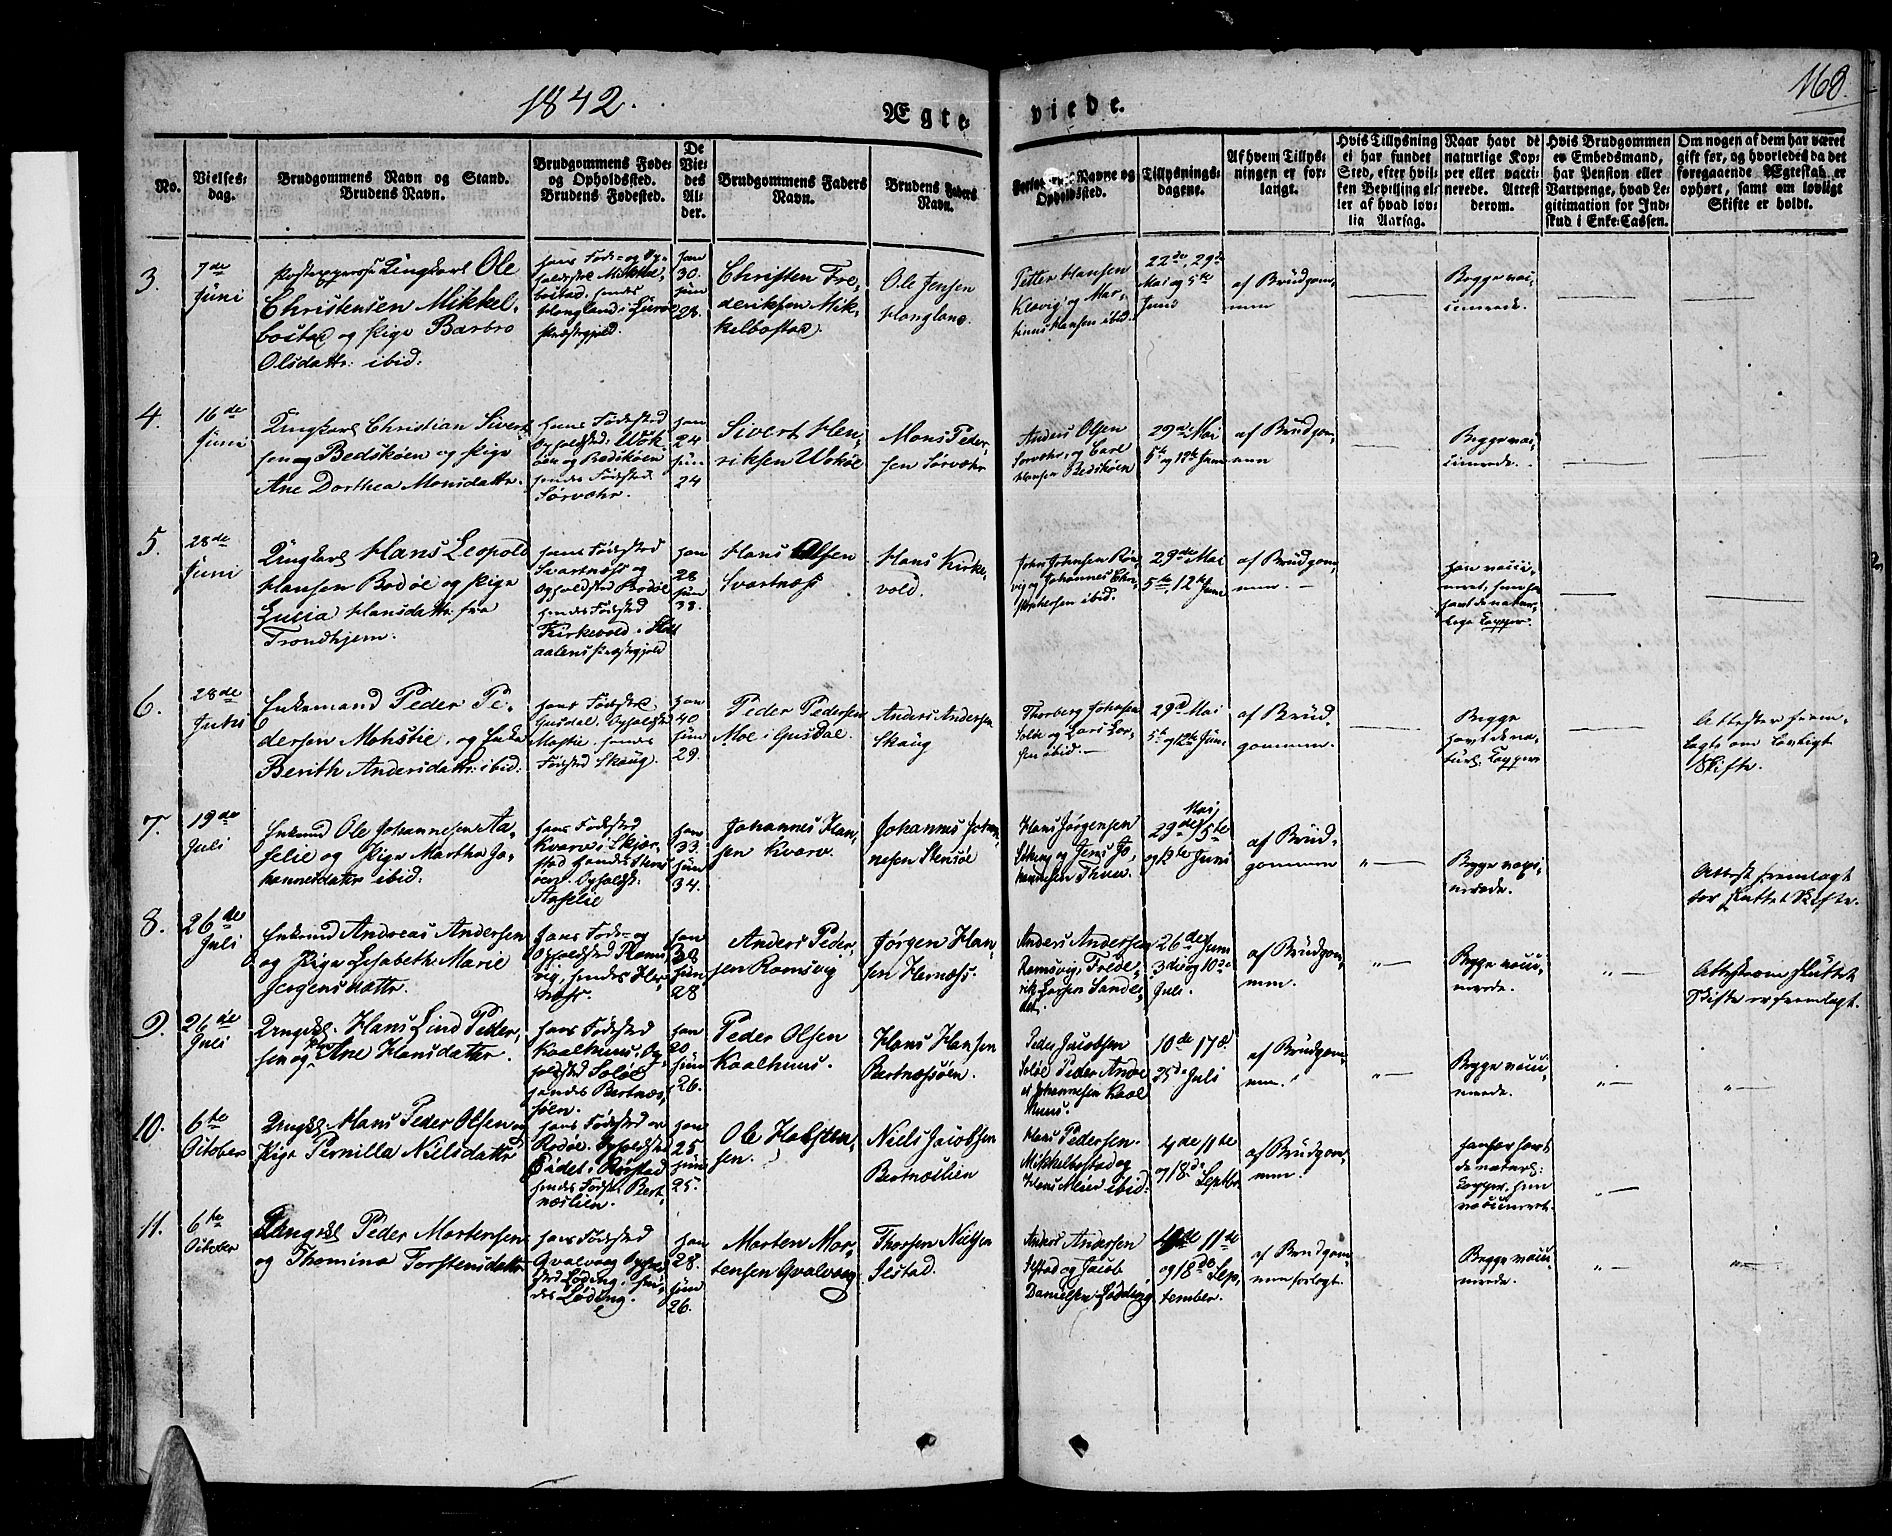 1842.
Ægte
viede.
168.
No.
Vielses-
dag.
Brudgommens Navn og Stand.
Brudens Navn.
Brudgommens Føde-
og Opholdssted.
Brudens Fødested.
De
Vie-
des
Al-
der.
Brudgommens Faders
Navn.
Brudens Faders
Navn.
Navne og
Opholdssted.
Tillysnings-
dagene.
Af hvem Tillys-
ningen er for-
langt.
Hvis Tillysning
ei har fundet
Sted, efter hvil-
ken Bevilling el-
ler af hvad lov-
lig Aarsag.
Naar havt de
naturlige Kop-
per eller vacci-
nerede. Attest
derom.
Hvis Brudgommen
er Embedsmand,
har Pension eller
Vartpenge, hvad Le-
gitimation for Ind-
skud i Enke-Cassen.
Om nogen af dem har været
gift før, og hvorledes da det
foregaaende Ægteskab er
ophørt, samt om lovligt
Skifte er holdt.
3.
7de
Juni
Ungkarl Ole
Christensen Mikkel-
bostad og Pige Barbro
Olsdattr. ibid.
hans Føde- og Op-
holdssted Mikkel-
bostad. hendes
Hongland i Lurøe
Præstegjeld.
han
30.
hun
28.
Christen Fre-
deriksen Mik-
kelbostad.
Ole Jensen
Hongland.
Petter Hansen
Klavig og Mar-
tinus Hansen ibid.
22de, 29de
Mai og 5te
Juni
af Brudgom-
men
Begge vac-
cinerede.
4.
16de
Juni
Ungkarl Christian Sivert-
sen og Bedskøen og Pige
Ane Dorthea Monsdattr.
hans Fødested
Opholdsted. Wok-
øen og Bedskøen
hendes Fødested
Sørvær.
han
24
hun
24
Sivert Hen-
riksen Wokøe
Mons Peder-
sen Sørvær
Anders Olsen
Sorvær, og Carl
Hansen Bedskøen
29de Mai
5te og 12te Juni
af Brudgom-
men
Begge vac-
cinerede.
5.
28de
Juni
Ungkarl Hans Leopold
Hansen Bodøe og Pige
Julia Hansdattr. fra
Trondhjem.
hans Fødested
Svartnæss og
Opholdsted Bodøe
hendes Fødested
Kirkevold i Hol-
aalens Præstegjeld
han
28
hun
38.
Hans Olsen
Svartnæss
Hans Kirke-
vold.
John Johnsen Røn-
vig og Johannes Chri-
stophersen ibid.
29de Mai
5te, 12te Juni
af Brudgom-
men.
han vacci-
neret, hun har
havt de natur-
lige Kopper.
6.
28de
Juni
Enkemand Peder Pe-
dersen Mohstie, og Enke
Berith Andersdattr. ibid:
hans Fødested
Gusdal. Opholdsted
Mostie. hendes
Fødested Skaug.
han
40
hun
29.
Peder Pedersen
Moe i Gusdal.
Anders Andersen
Skaug
Thorberg Johnsen
Solte og Lars Lar-
sen ibid.
29d Mai
5te og 12te Juni
af Brud-
gommen.
Begge
havt de na-
turl. Kopper
Attester frem-
lagt om lovligt
Skifte.
7.
19de
Juli
Enkmd Ole Johannesen Aa-
selie og Pige Martha Jo-
hannesdatter ibid.
hans Fødested
Kvarv i Skjer-
stad hendes Sten-
søen. Opholdst.
Aaselie
han
33.
hun
34.
Johannes Han-
sen Kvarv.
Johannes Johan-
nesen Stensøe
Hans Jørgensen
og Jens Jo-
hannesen Thver.
Mai,
29de 5te
og 12te Juni
af Brud-
gommen
Begge vacci-
nerede.
Attest fremlagt
for sluttet Skifte.
8.
26de
Juli
Enkmd Andreas Andersen
og Pige Elisabeth Marie
Jørgensdattr.
hans Føde- og
Opholdsted Rams-
vig, hendes Her-
næss.
han
38
hun
28
Anders Peder-
sen Ramsvig
Jørgen Han-
sen Hernæss.
Anders Andersen
Ramsvig, Frede-
rik Larsen Sand-
26de Juni
3die og 10de
Juli.
af Brudgom-
men.
Begge vacci-
nerede.
Attest om sluttet
Skifte er fremlagt.
9.
26de
Juli
Ungkl. Hans Lind Peder-
sen og Pige Ane Hansdatter.
hans Fødested
Kaalhuus. Op-
holdsted Soløe
hendes Bertnæs-
søen.
han
20
hun
26.
Peder Olsen
Kaalhuus.
Hans Hansen
Bertnæssøen.
Peder Jacobsen
Soløe Peder Andre-
as Johannesen Kaal-
huus.
10de 17de
25de Juli
af Brudgom-
men.
Begge vacci-
nerede.
10.
6te
October
Ungkl. Hans Peder Olsen og
Pige Pernilla Nielsdattr
hans Fødested er
Rødøe. Opholdsted
hendes Fødest. Bert-
næslien.
han
25
hun
25.
Ole Halsten-
sen.
Niels Jacobsen
Bertnæslien
Hans Pedersen
Mikkelbostad og
Hans Meier ibid.
4de 11te
og 18de
Septbr.
af Brudgom-
men.
han har havt
de naturl:
Kopper, hun
vaccineret.
11.
6te
October
Ungkl Peder Mortensen
og Thomina Torstensdattr.
hans Fødested
Qvalvaag Ophold-
sted Løding. hen-
des Løding.
han
28.
hun
26.
Morten Mor-
tensen Qvalvaag
Thorsen Nielsen
Ilstad.
Anders Andersen
Ilstad og Jacob
Danielsen Lødding
4de 11te
og 18de Sep-
tember.
af Brudgom-
men forlagt.
Begge vacci-
nerede.